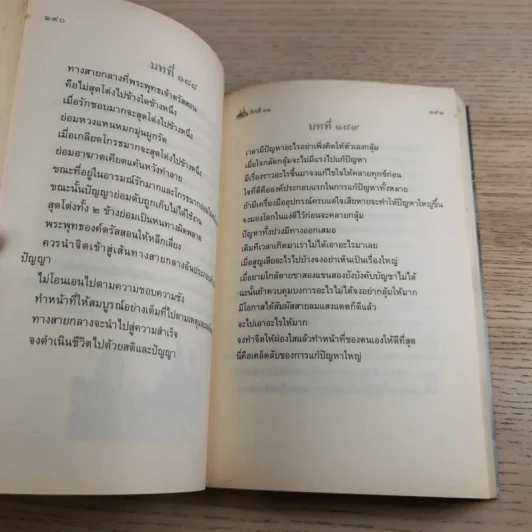 ๑๙๐
บทที่ ๑๘๘
ทางสายกลางที่พระพุทธเจ้าตรัสสอน
คือไม่สุดโต่งไปข้างใดข้างหนึ่ง
เมื่อรักชอบมากจะสุดโต่งไปข้างหนึ่ง
ย่อมหวงแหนหมกมุ่นผูกรัด
เมื่อเกลียดโกรธมากจะสุดโต่งไปข้างหนึ่ง
ย่อมอาฆาตเคียดแค้นหวังทำลาย
ขณะที่อยู่ในอารมณ์รักมากและโกรธมาก
ขณะนั้นปัญญาย่อมดับถูกเก็บไม่ได้ใช้งาน
สุดโต่งทั้ง ๒ ข้างย่อมเป็นหนทางผิดพลาด
พระพุทธองค์ตรัสสอนให้หลีกเลี่ยง
ควรนำจิตเข้าสู่เส้นทางสายกลางอันประกอบด้วย
ปัญญา
ไม่โอนเอนไปตามความชอบความชัง
ทำหน้าที่ให้สมบูรณ์อย่างเต็มที่ไปตามเหตุ
ทางสายกลางจะนำไปสู่ความสำเร็จ
จงดำเนินชีวิตไปด้วยสติและปัญญา
๑๙๑
บทที่ ๑๘๙
เวลามีปัญหาอะไรอย่าเพิ่งคิดให้ตัวเองกลุ้ม
เมื่อใจกลัดกลุ้มจะไม่มีแรงไปแก้ปัญหา
มีเรื่องราวอะไรขึ้นมาจงแก้ไขใจให้คลายทุกข์ก่อน
ใจที่ดีคือองค์ประกอบแรกในการแก้ปัญหาทั้งหลาย
ถ้ามีเครื่องมืออุปกรณ์ครบแต่ใจเสียหายจะทำให้ปัญหาใหญ่ขึ้น
จงมองโลกในแง่ดีไว้ก่อนจะคลายกลุ้ม
ปัญหาทั้งปวงมีทางออกเสมอ
เดิมทีเวลาเกิดมาเราไม่ได้เอาอะไรมาเลย
เมื่อสูญเสียอะไรไปบ้างจงอย่าเห็นเป็นเรื่องใหญ่
เมื่อยามใกล้ตายขาสองแขนสองยังบังคับบัญชาไม่ได้
ฉะนั้นถ้าควบคุมบงการอะไรไม่ได้จงอย่ากลุ้มให้มาก
มีโอกาสได้สัมผัสสายลมแสงแดดก็ดีแล้ว
จะไปเอาอะไรให้มาก
จงทำจิตให้ผ่องใสแล้วทำหน้าที่ของตนเองให้ดีที่สุด
นี่คือเคล็ดลับของการแก้ปัญหาใหญ่